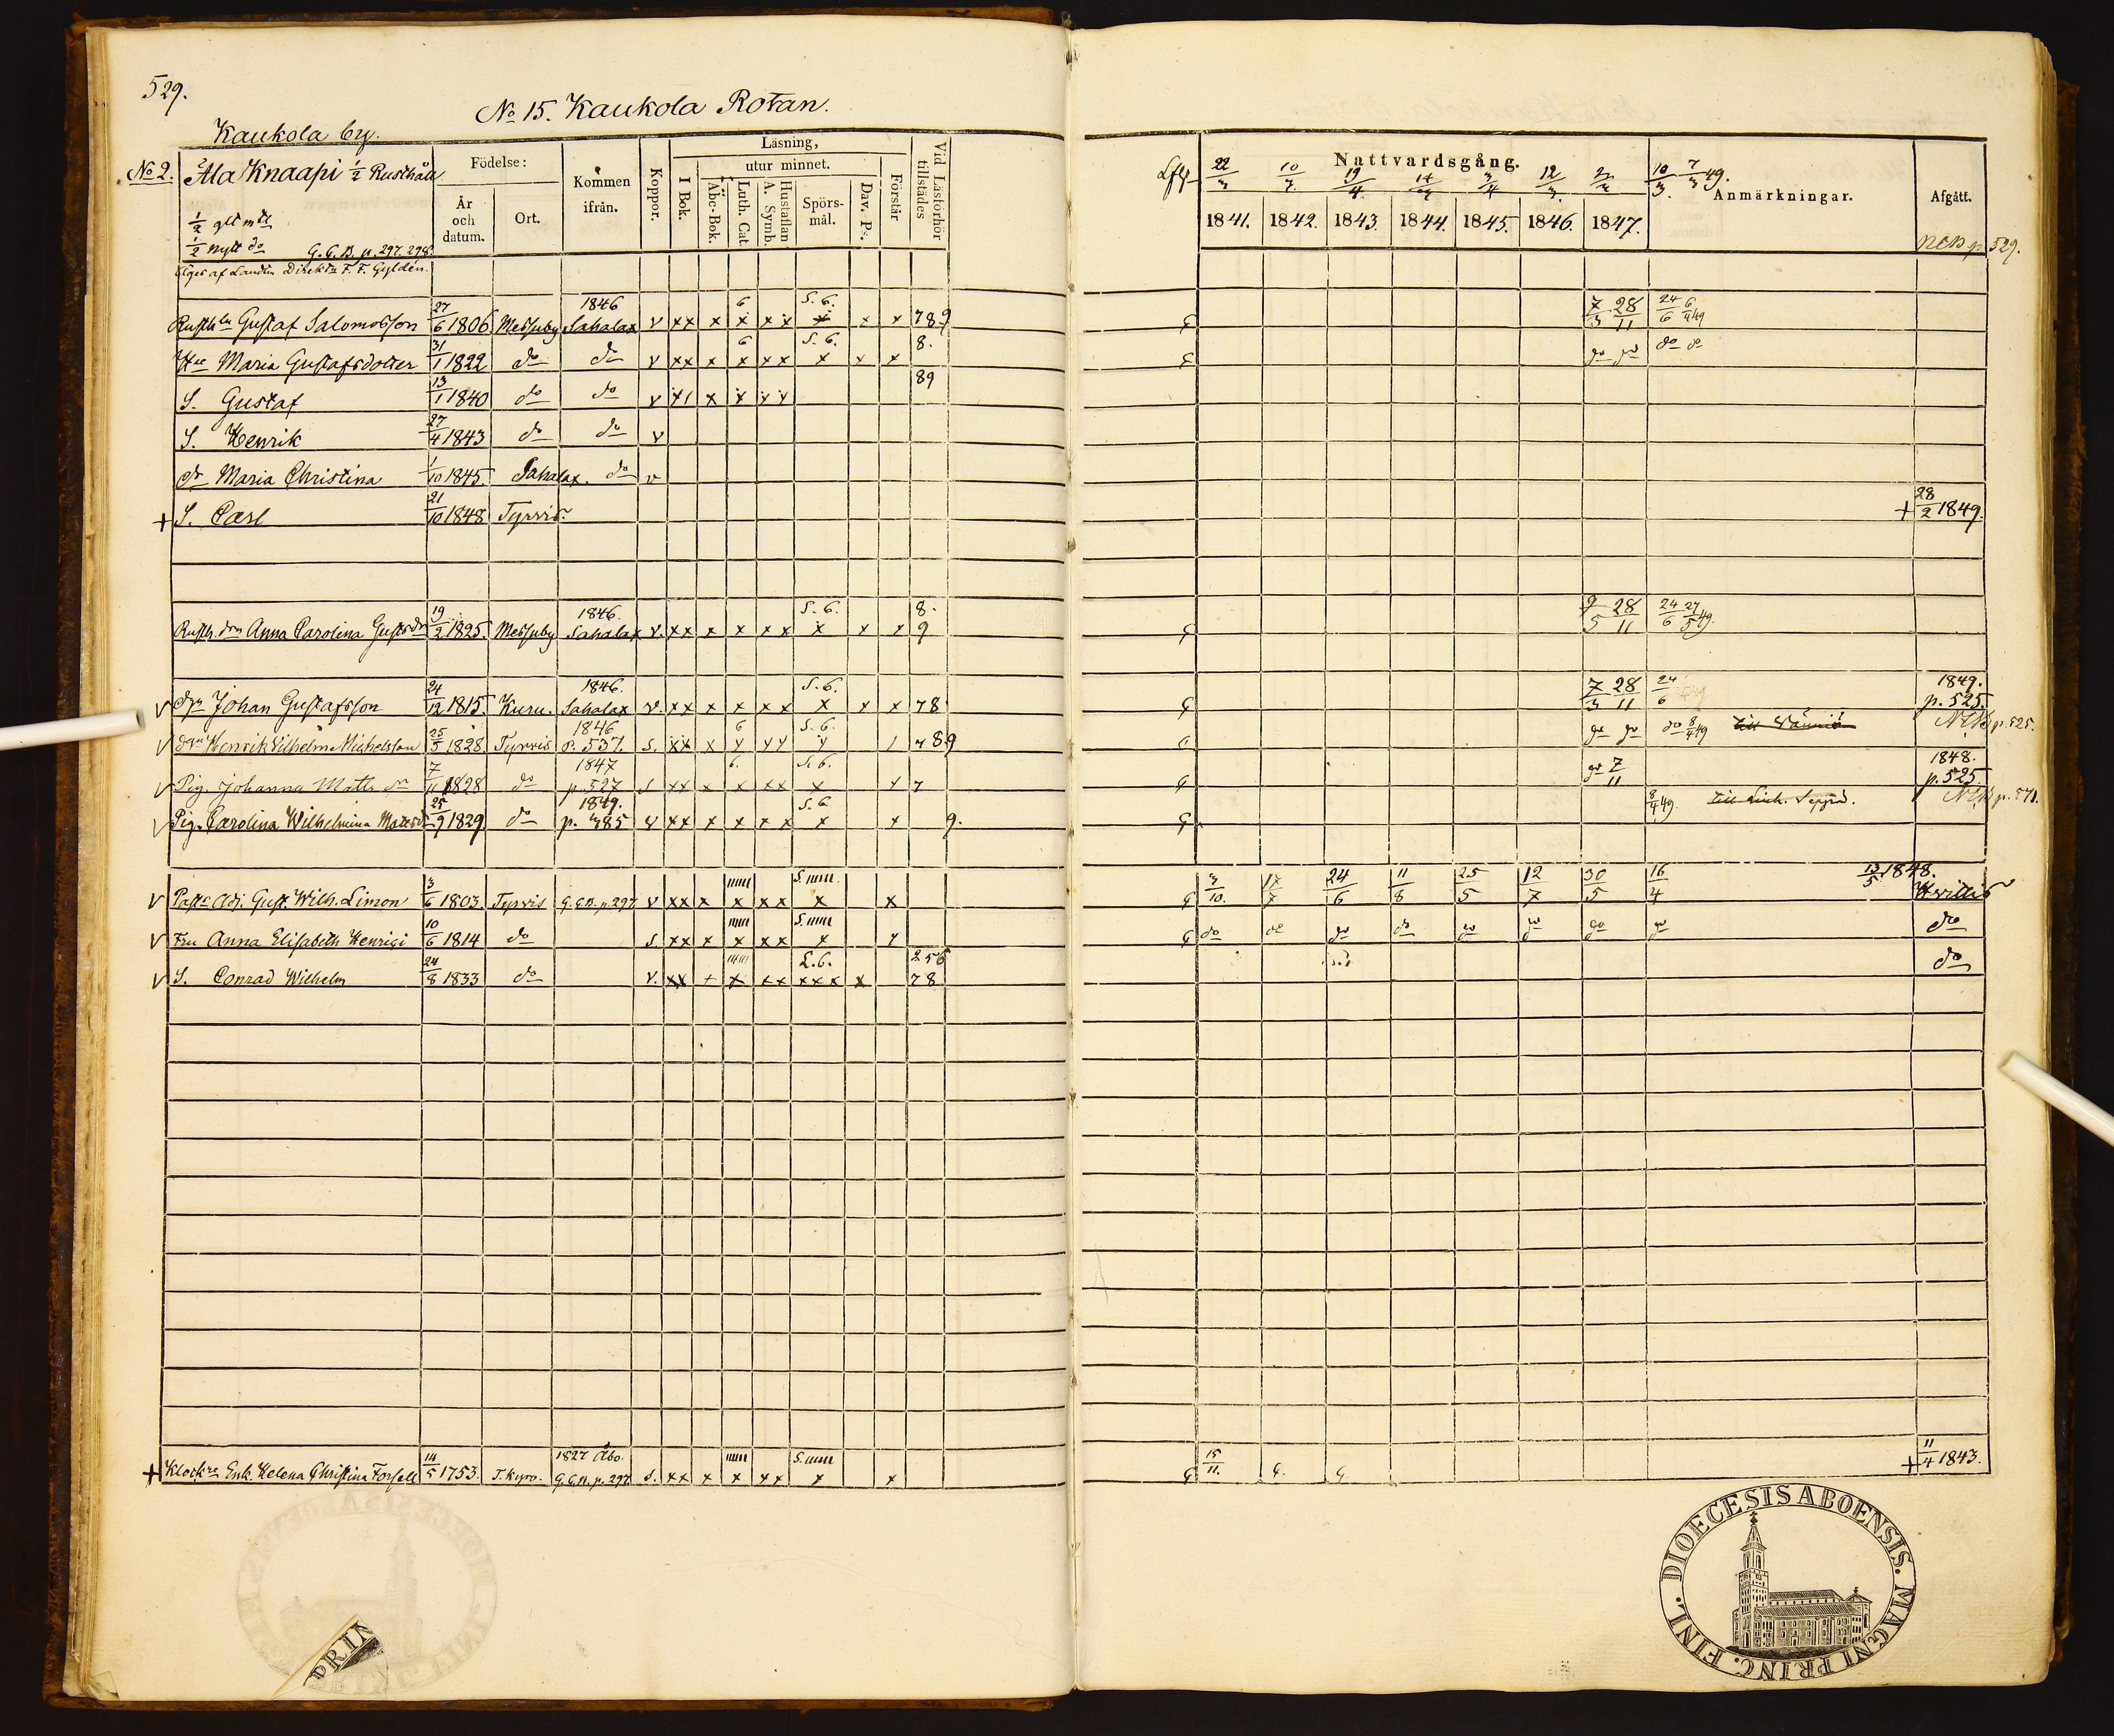 529.
No 15. Kaukola Rotan.
Kaukola by.
No 2. Ala Knaapi 1/2 Rusthåll
1/2 nytt do G. C. B. p. 297. 298.
Äges af F. F. Gyldén.
Födelse:
År och datum.
Ort.
Kommen ifrån.
Koppor.
Läsning,
I Bok.
utur minnet.
Abc-Bok.
Luth. Cat.
A. Symb.
Hustaflan
Spörs-mål.
Dav. Ps.
Förstår.
Vid Läsförhör tillstådes
22/3 10/3 19/4 14/3 3/4 12/3 10/3 7/3 49.
Nattvardsgång.
1841. 1842. 1843. 1844. 1845. 1846. 1847.
Anmärkningar.
Afgått.
NCB p. 529.
Rusth. Gustaf Salomosson 27/6 1806. Messuby 1846 Sahalax v xx x x 6 x x S. 6. x x x 789 7/3 28/11 24/6 6/4 49
Maria Gustafsdotter 31/1 1822 do do v xx x x 6 x x S. 6. x x x 8. do do do do
S. Gustaf 13/1 1840 do do v 89
S. Henrik 27/4 1843 do do v
dr Maria Christina 1/10 1845. Sahalax. do v
+ S. Carl 21/10 1848 Tyrvis + 28/2 1849.
Rusth. drn Anna Carolina Gustsdr 19/2 1825. Messuby 1846. Sahalax v. xx x x x x S. 6. x x x 8. 9 9/5 28/11 24/6 27/5 49.
v Johan Gustafsson 24/12 1815 Kuru. 1846. Sahalax v. xx x x x x S. 6. x x x 78 7/3 28/11 24/6 1849. p. 525.
v Henrik Vilhelm Michelsson 25/5 1828. Tyrvis 1846 p. 537. S. 6 S. 6. 789 do do do 8/4 49 NCB p. 525.
v Pig. Johanna Matts dr 7/11 1828 do 1847 p. 527 S xx x x 6. x x S. 6. x x 7 do 7/11 1848. p. 525.
v Pig. Carolina Wilhelmina 25/9 1829 do 1849. p. 485 v xx x x x x S. 6 x x 9. 8/4 49. NCB p. 571.
v Past. Adj. Gust. Wilh. Limon 3/6 1803. Tyrvis G. C. B. p. 297 v xx x x x x x x 3/10. 17/7 24/6 11/8 25/5 12/7 30/5 16/4 13/5 1848. Hvittis
v Fru Anna Elisabeth Henrici 10/6 1814 do S. xx x x x x x x do do do do do do do do do
v S. Conrad Wilhelm 24/8 1833 do v. xx + x x x xxx x 256 78 do
+ Klock. Enk. Helena Christina Forsell 14/5 1753. T. Kyro. 1827 Åbo. G. C. B. p. 297. S. xx x x x x x x 15/11. + 11/4 1843.
DIOECESIS ABOENSIS. MAGNI PRINC. FINL.
PRIN